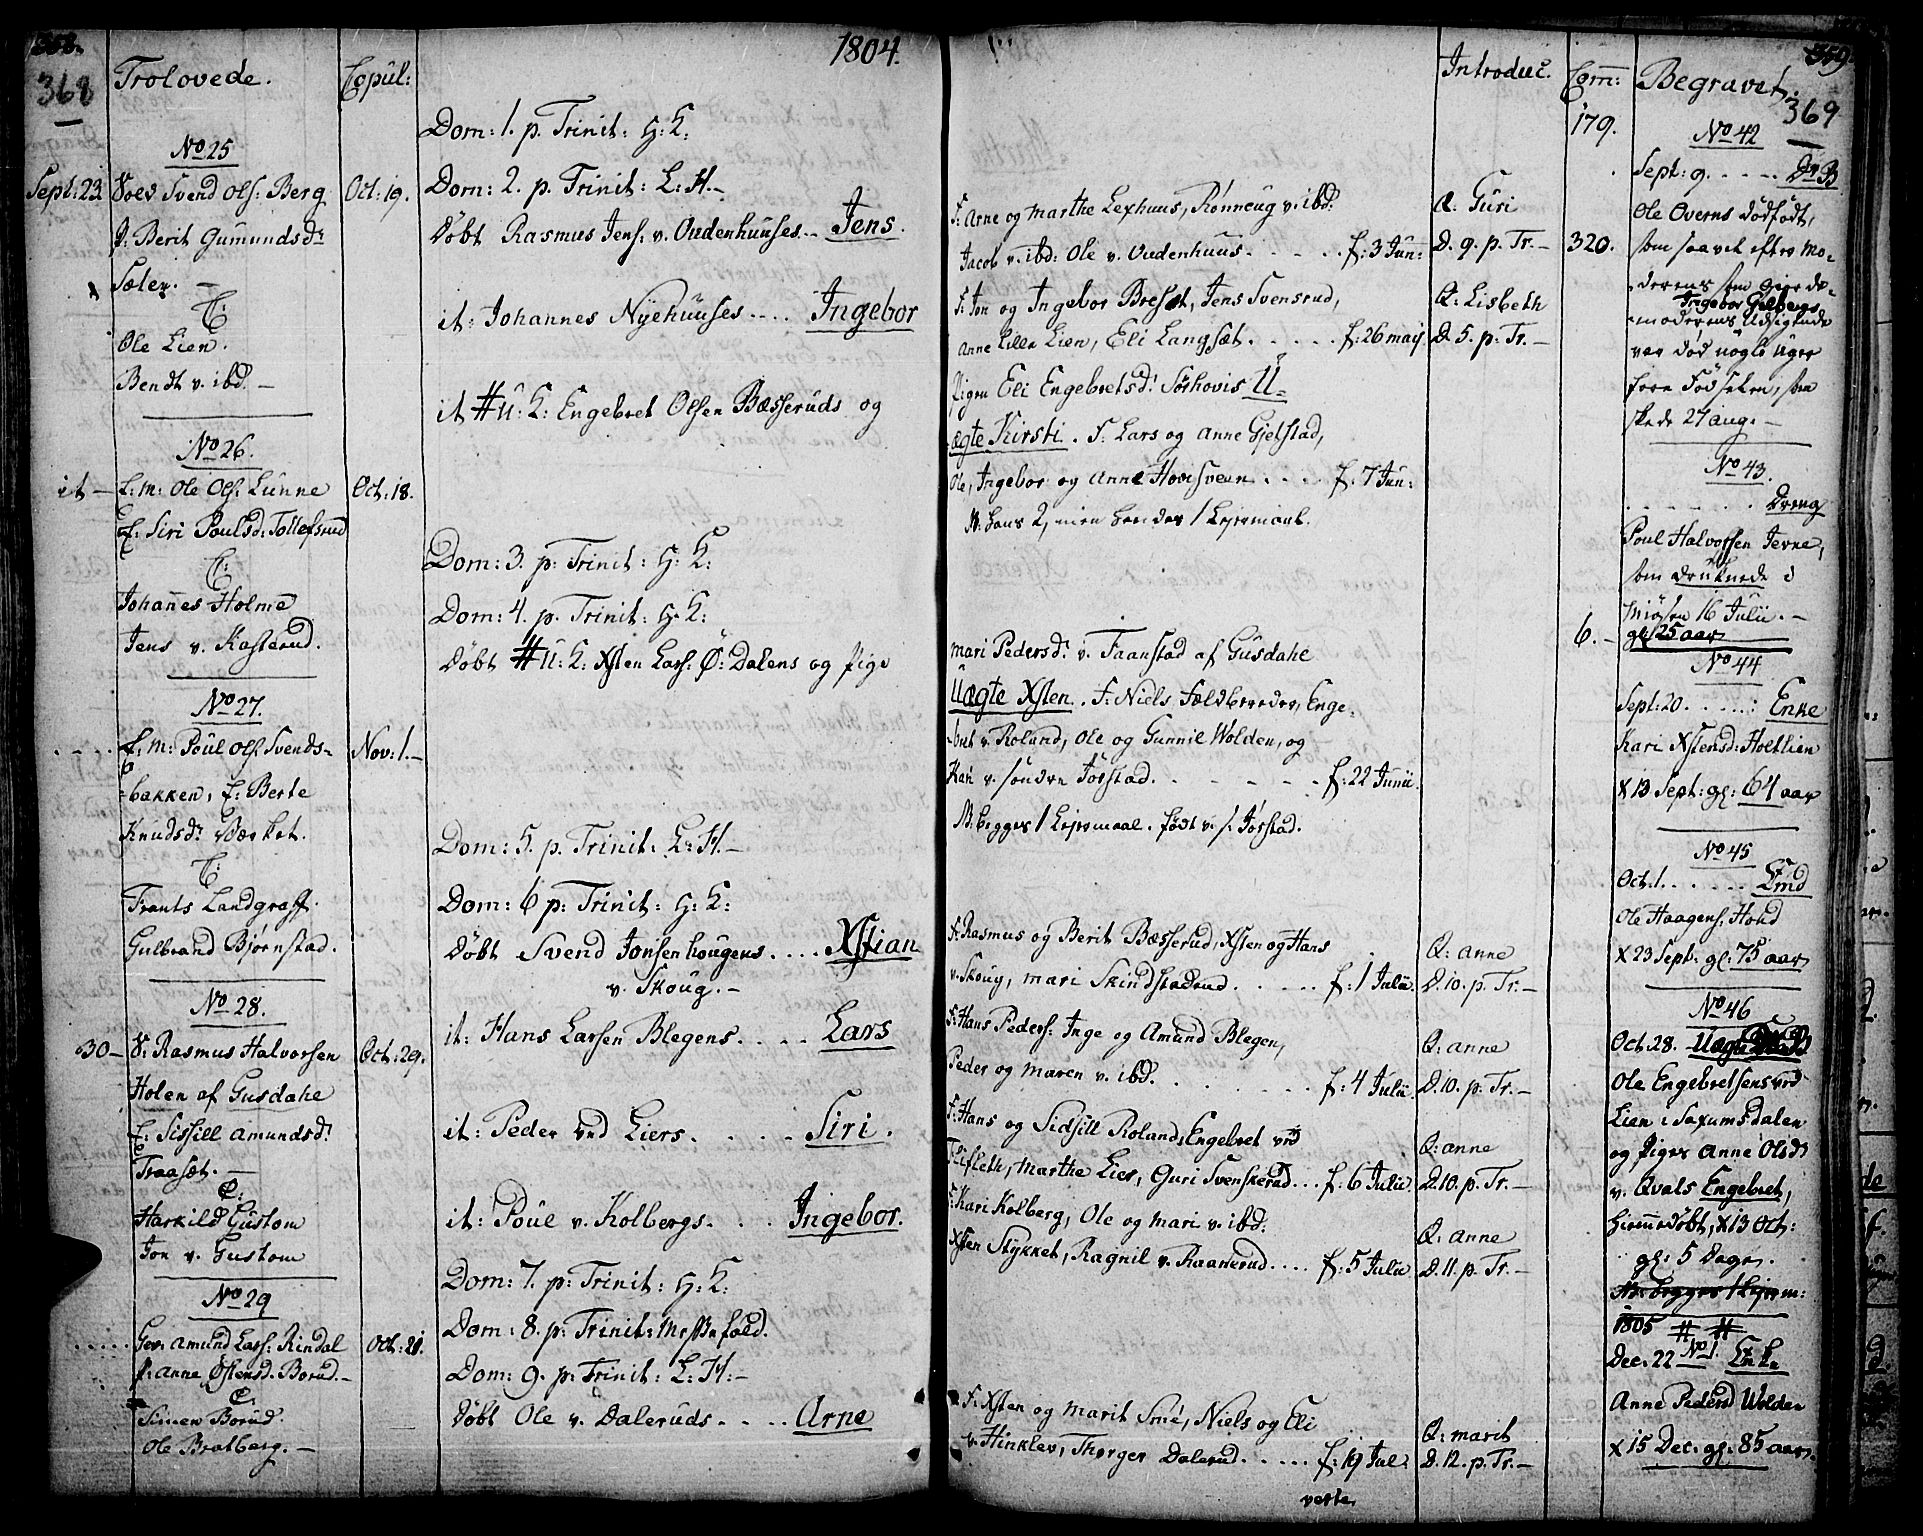 358.
368
Trolovede.
Copul:
1804.
No 25
Sept: 23
Svend Ols: Berg
Oct: 19.
P: Berit Gumundsdr
Sæter. –
C:
Ole Lien.
Bendt v. ibd. –
No 26.
it –
E: M: Ole Ols: Lunne
Oct: 18.
E: Siri Poulsd: Tollefsrud
C:
Johannes Holme
Jens v. Kasterud.
No 27.
E: M: Poul Ols: Svends=
Nov: 1. –
=bakken, E: Berte
Knudsdr Værket.
C:
Frants Landgraff.
Gulbrand Bjørnstad.
No 28.
30 –
S: Rasmus Halvorsen
Oct: 29.
Holen af Gusdahe
E: Sissill Amundsdr
Traaset. –
C:
Harkild Gustom
Jon v. Gustom
No 29
Amund Lars: Rindal
Oct: 21.
P: Anne Østensd. Borud. –
C:
Simen Borud.
Ole Bratberg. –
Dom: 1. p. Trinit: H: K:
Dom: 2. p. Trinit: L: H. –
Døbt Rasmus Jens: v. Oudenhuuses – Jens.
it: Johannes Nyehuuses .... Ingebor
it # U: K: Engebret Olsen Bæsseruds og
Dom: 3. p: Trinit: H: K:
Dom: 4. p: Trinit: H: K:
Døbt # U: K: Xsten Lars: Ø: Dalens og Pige
Dom: 5. p. Trinit: L: H. –
Dom: 6 p: Trinit: H: K:
Døbt Svend Jonsen Hougens .... Xstian
v. Skoug. –
it: Hans Larsen Blegens. .... Lars
it: Peder ved Liers. .... Siri.
it: Poul v. Kolbergs. ... Ingebor.
Dom: 7. p: Trinit: H: K:
Dom: 8. p: Trinit: Messefald.
Dom: 9. p: Trinit: L: H: –
Døbt Ole v. Daleruds .... Arne
F: Arne og Marthe Lexhuus, Rønneug v. ibd:
Jacob v. ibd: Ole v. Oudenhuus. .... f: 3 Jun:
F: Jon og Ingebor Bresæt, Jens Svensrud,
Anne Lille Lien, Eli Langsæt. .... f: 26 maij
Pigen Eli Engebretsd: Sørhovis U=
=ægte Kirsti. F: Lars og Anne Gjetstad,
Ole, Ingebor og Anne Hovisveen .... f: 7 Jun:
N: hans 2, men hendes 1 Lejermaal.
Mari Pedersdr v. Faanstad af Gusdahe
Uægte Xsten. F: Niels Feldbereder, Enge=
=bret v. Roland, Ole og Gunnil Wolden, og
Kari v. søndre Jørstad. .... f: 22 Junii.
N: begges 1 Lejermaal. født v. s. Jørstad.
F: Rasmus og Berit Bæsserud, Xsten og Hans
v. Skoug, Mari Skindstadrud. .... f: 1 Julii.
F: Hans Peders: Inge og Amund Blegen,
Peder og Maren v. ibd. .... f: 4 Julii
F: Hans og Sidsill Roland, Engebret ved
Flifleth, Marthe Lier, Guri Svenskerud ... f: 6 Julii.
F: Kari Kolberg, Ole og Mari v. ibd:
Xsten Stykket, Ragnil v. Raanerud .... f: 5 Julii
F: Xsten og Marit Smé, Niels og Eli
v. Hinklev, Thorger Dalerud .... f: 19 Jul.
Introduc.
Q: Guri
D. 9. p. Tr. –
Q: Lisbeth
D. 5. p. Tr. –
Q: Anne
D. 10. p. Tr. –
Q: Anne
D. 10. p. Tr. –
Q: Anne
D. 10. p. Tr. –
Q: Anne
D. 11. p. Tr. –
Q: Marit
D. 12. p. Tr. –
Com:
179.
320.
6. –
359
Begravet.
369
No 42
Sept: 9. ....
Ole Overns dødfødt,
som saavel efter Mo=
=derens som Gjorde=
Ingebor Gilbergs
=moderens Udsigende
var død nogle Uger
føre Fødselen, som
skede 27 aug. –
No 43.
Dreng
Poul Halvorsen Jevne,
som druknede i
Miøsen 16 Julii. –
gl: 25 aar
No 44
Sept: 20. .... Enke
Kari Xstensd: Holtlien
X 13 Sept: gl: 64 aar
No 45
Oct. 1. ....
Ole Haagens: Houd
X 23 Sept: gl: 75 aar
No 46
Oct: 28. Uægte
Ole Engebretsens ved
Lien i Saxumsdalen
og Piges Anne Olsd
v. Qvals Engebret,
hiemmedøbt, X 13 Oct:
gl: 5 Dage.
N: begges 1 Lejerm:
1805 # #
Dec. 22 No 1. Enke
Anne Pedersd Wolden
X 15 Dec: gl: 85 aar.